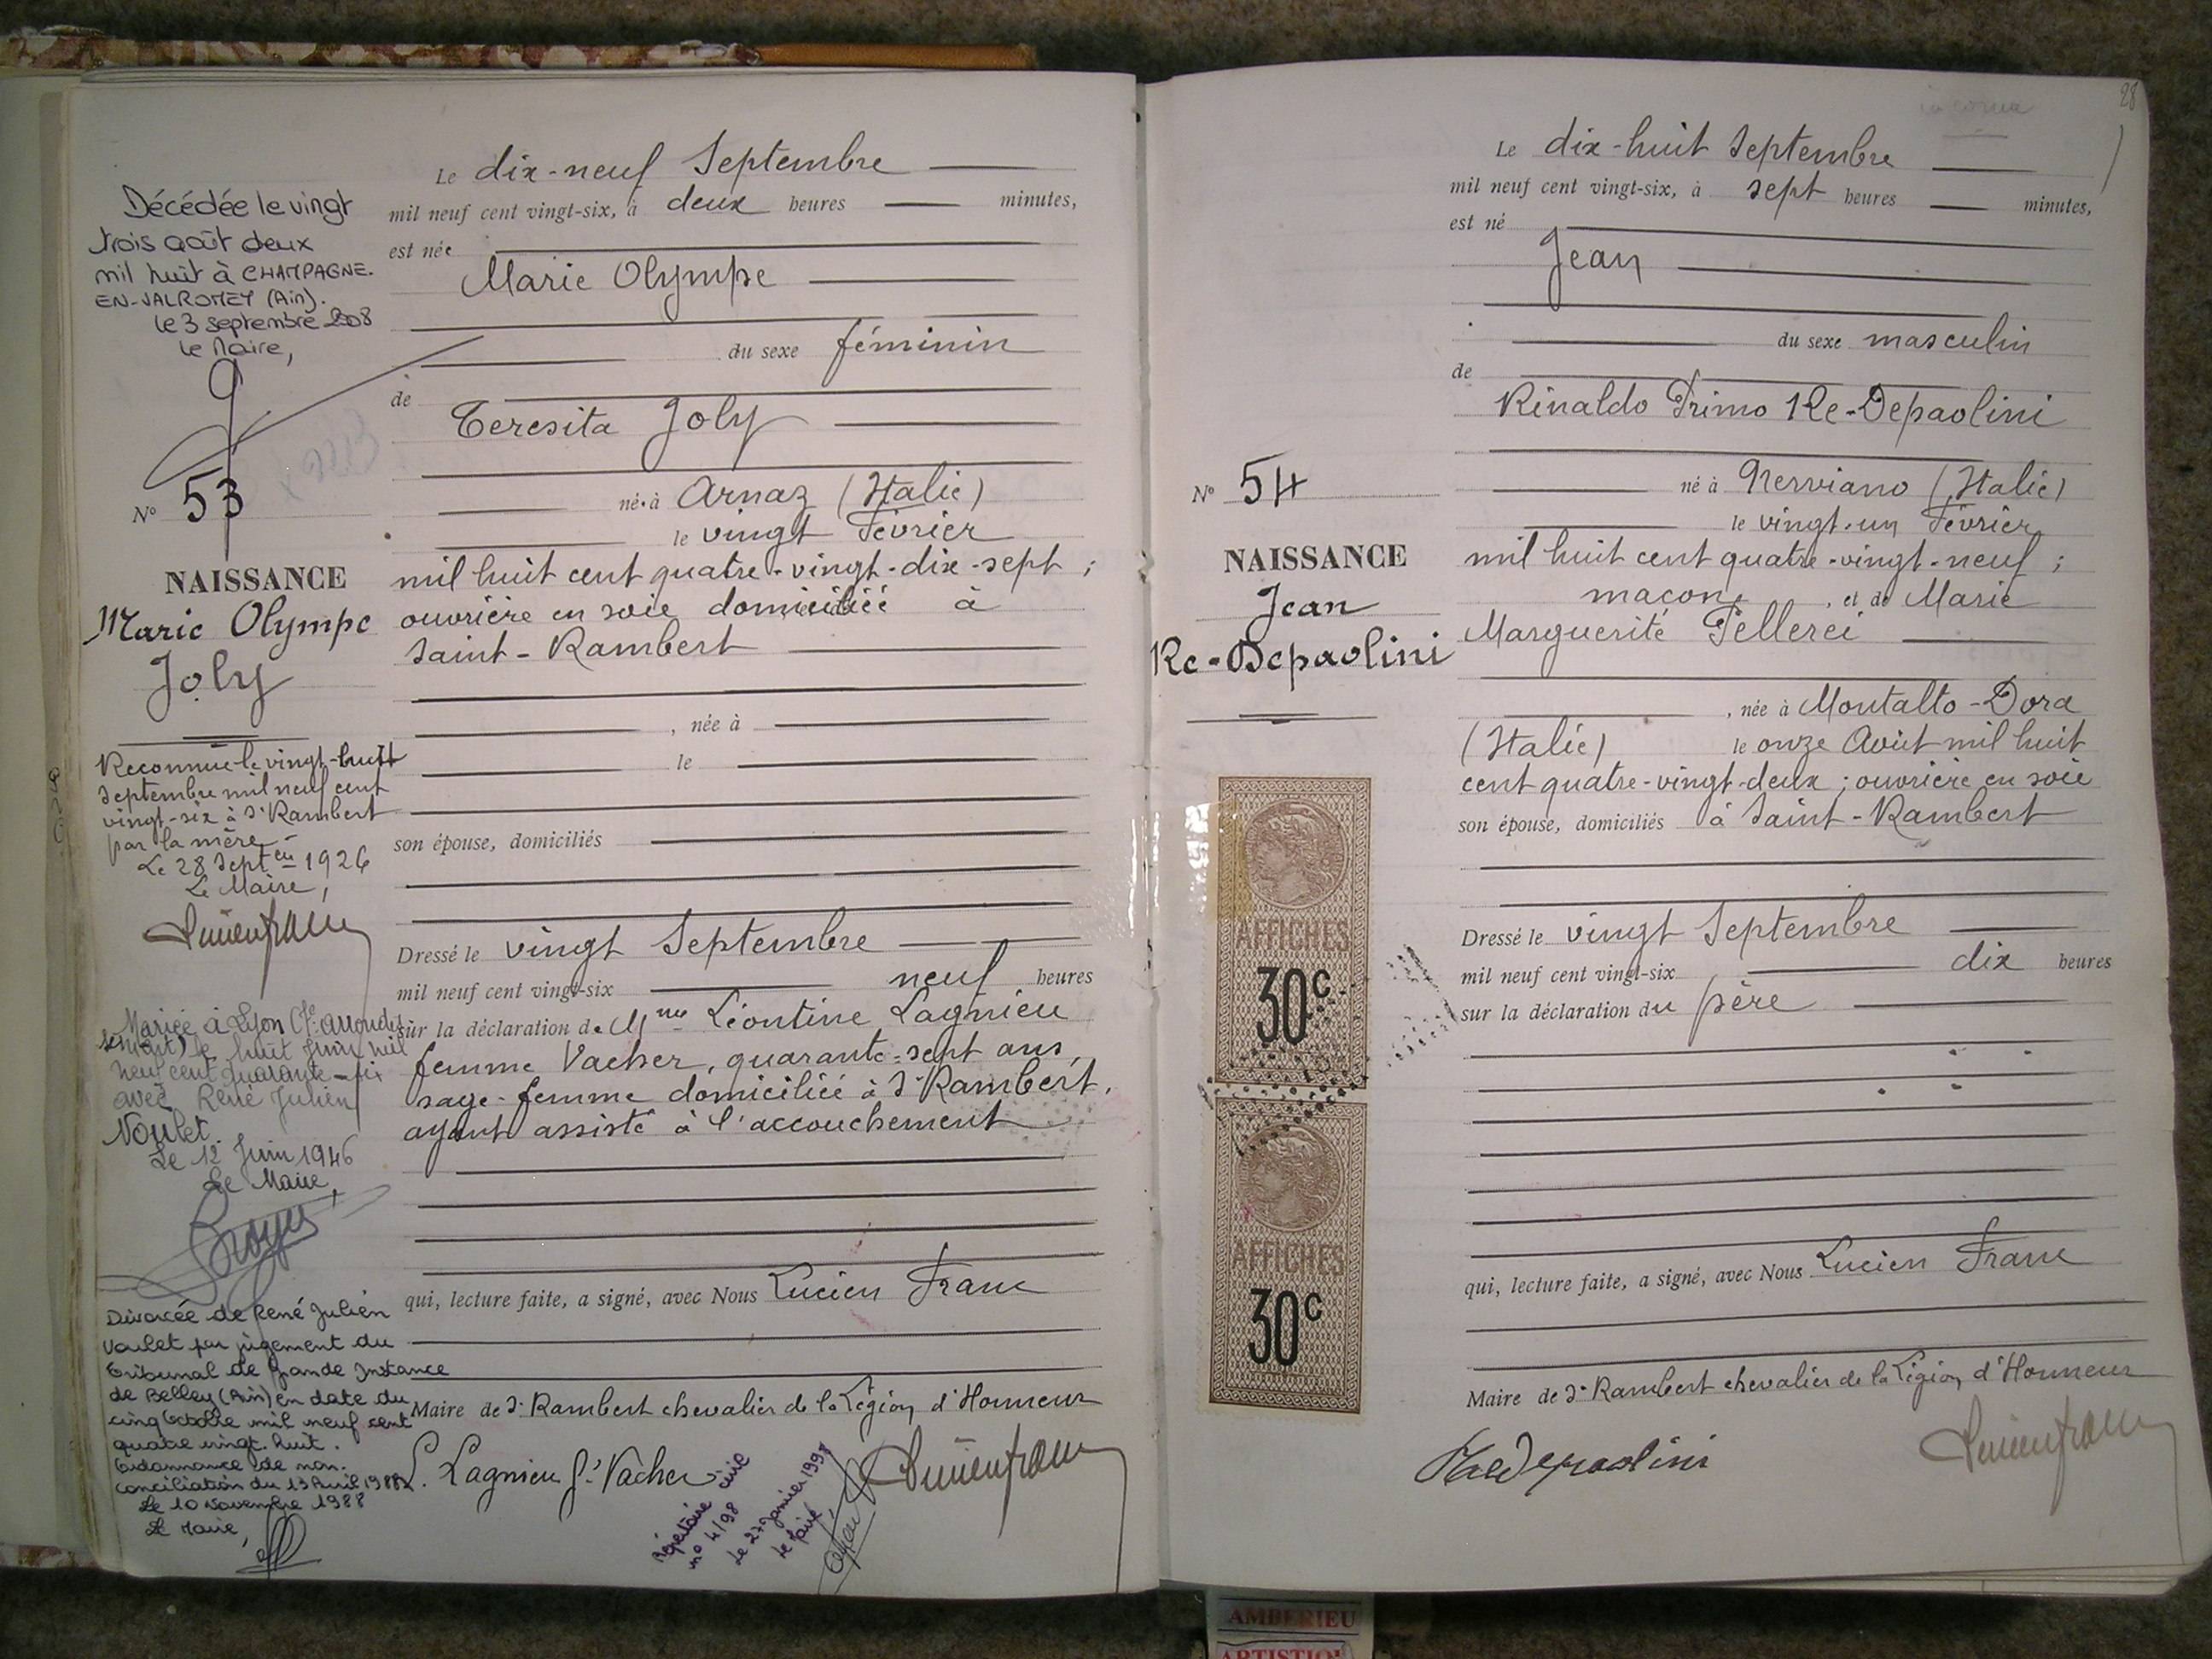 Décédée le vingt
trois août deux
mil huit à CHAMPAGNE.
EN-VALROMEY (Ain).
le 3 septembre 2008
le Maire,
N° 53
NAISSANCE
Marie Olympe
Joly
Reconnue le vingt-huit
Septembre mil neuf cent
vingt-six à St Rambert
par la mère -
Le 28 Septbre 1926
Le Maire,
Mariée à Lyon (7e arrondis
sement) le huit Juin mil
neuf cent quarante-six
avec René Julien
Voulet
Le 12 Juin 1946
Le Maire,
Divorcée de René Julien
Voulet par jugement du
Tribunal de Grande Instance
de Belley (Ain) en date du
cinq Octobre mil neuf cent
quatre vingt. huit.
Ordonnance de non.
conciliation du 13 Avril 1988.
Le 10 Novembre 1988
Le Maire,
Le dix-neuf Septembre
mil neuf cent vingt-six, à deux heures minutes,
est née
Marie Olympe
du sexe féminin
de
Teresita Joly
né à Arnaz (Italie)
le vingt Février
mil huit cent quatre-vingt-dix-sept ;
ouvrière en soie domiciliée à
Saint-Rambert
, née à
le
son épouse, domiciliés
Dressé le vingt Septembre
mil neuf cent vingt-six neuf heures
sur la déclaration de Mme Léontine Lagnieu
femme Vacher, quarante-sept ans,
sage-femme domiciliée à St Rambert,
ayant assisté à l'accouchement
qui, lecture faite, a signé, avec Nous Lucien Franc
Maire de St Rambert chevalier de la Légion d'Honneur
L. Lagnieu f. Vacher
Répertoire civil
n° 4/98
Le 27 Janvier 1998
Le Maire
28
Le dix-huit Septembre
mil neuf cent vingt-six, à sept heures minutes,
est né
Jean
du sexe masculin
de
Rinaldo Primo Re-Depaolini
N° 54
né à Nerviano (Italie)
le vingt-un Février
NAISSANCE
Jean
Re-Depaolini
mil huit cent quatre-vingt-neuf ;
maçon, , et de Marie
Marguerite Pellerei
, née à Montalto-Dora
(Italie) le onze Août mil huit
cent quatre-vingt-deux ; ouvrière en soie
son épouse, domiciliés à Saint-Rambert
AFFICHES
30c
AFFICHES
30c
Dressé le vingt Septembre
mil neuf cent vingt-six dix heures
sur la déclaration du père
qui, lecture faite, a signé, avec Nous Lucien Franc
Maire de St Rambert chevalier de la Légion d'Honneur
Re Depaolini
AMBERIEU